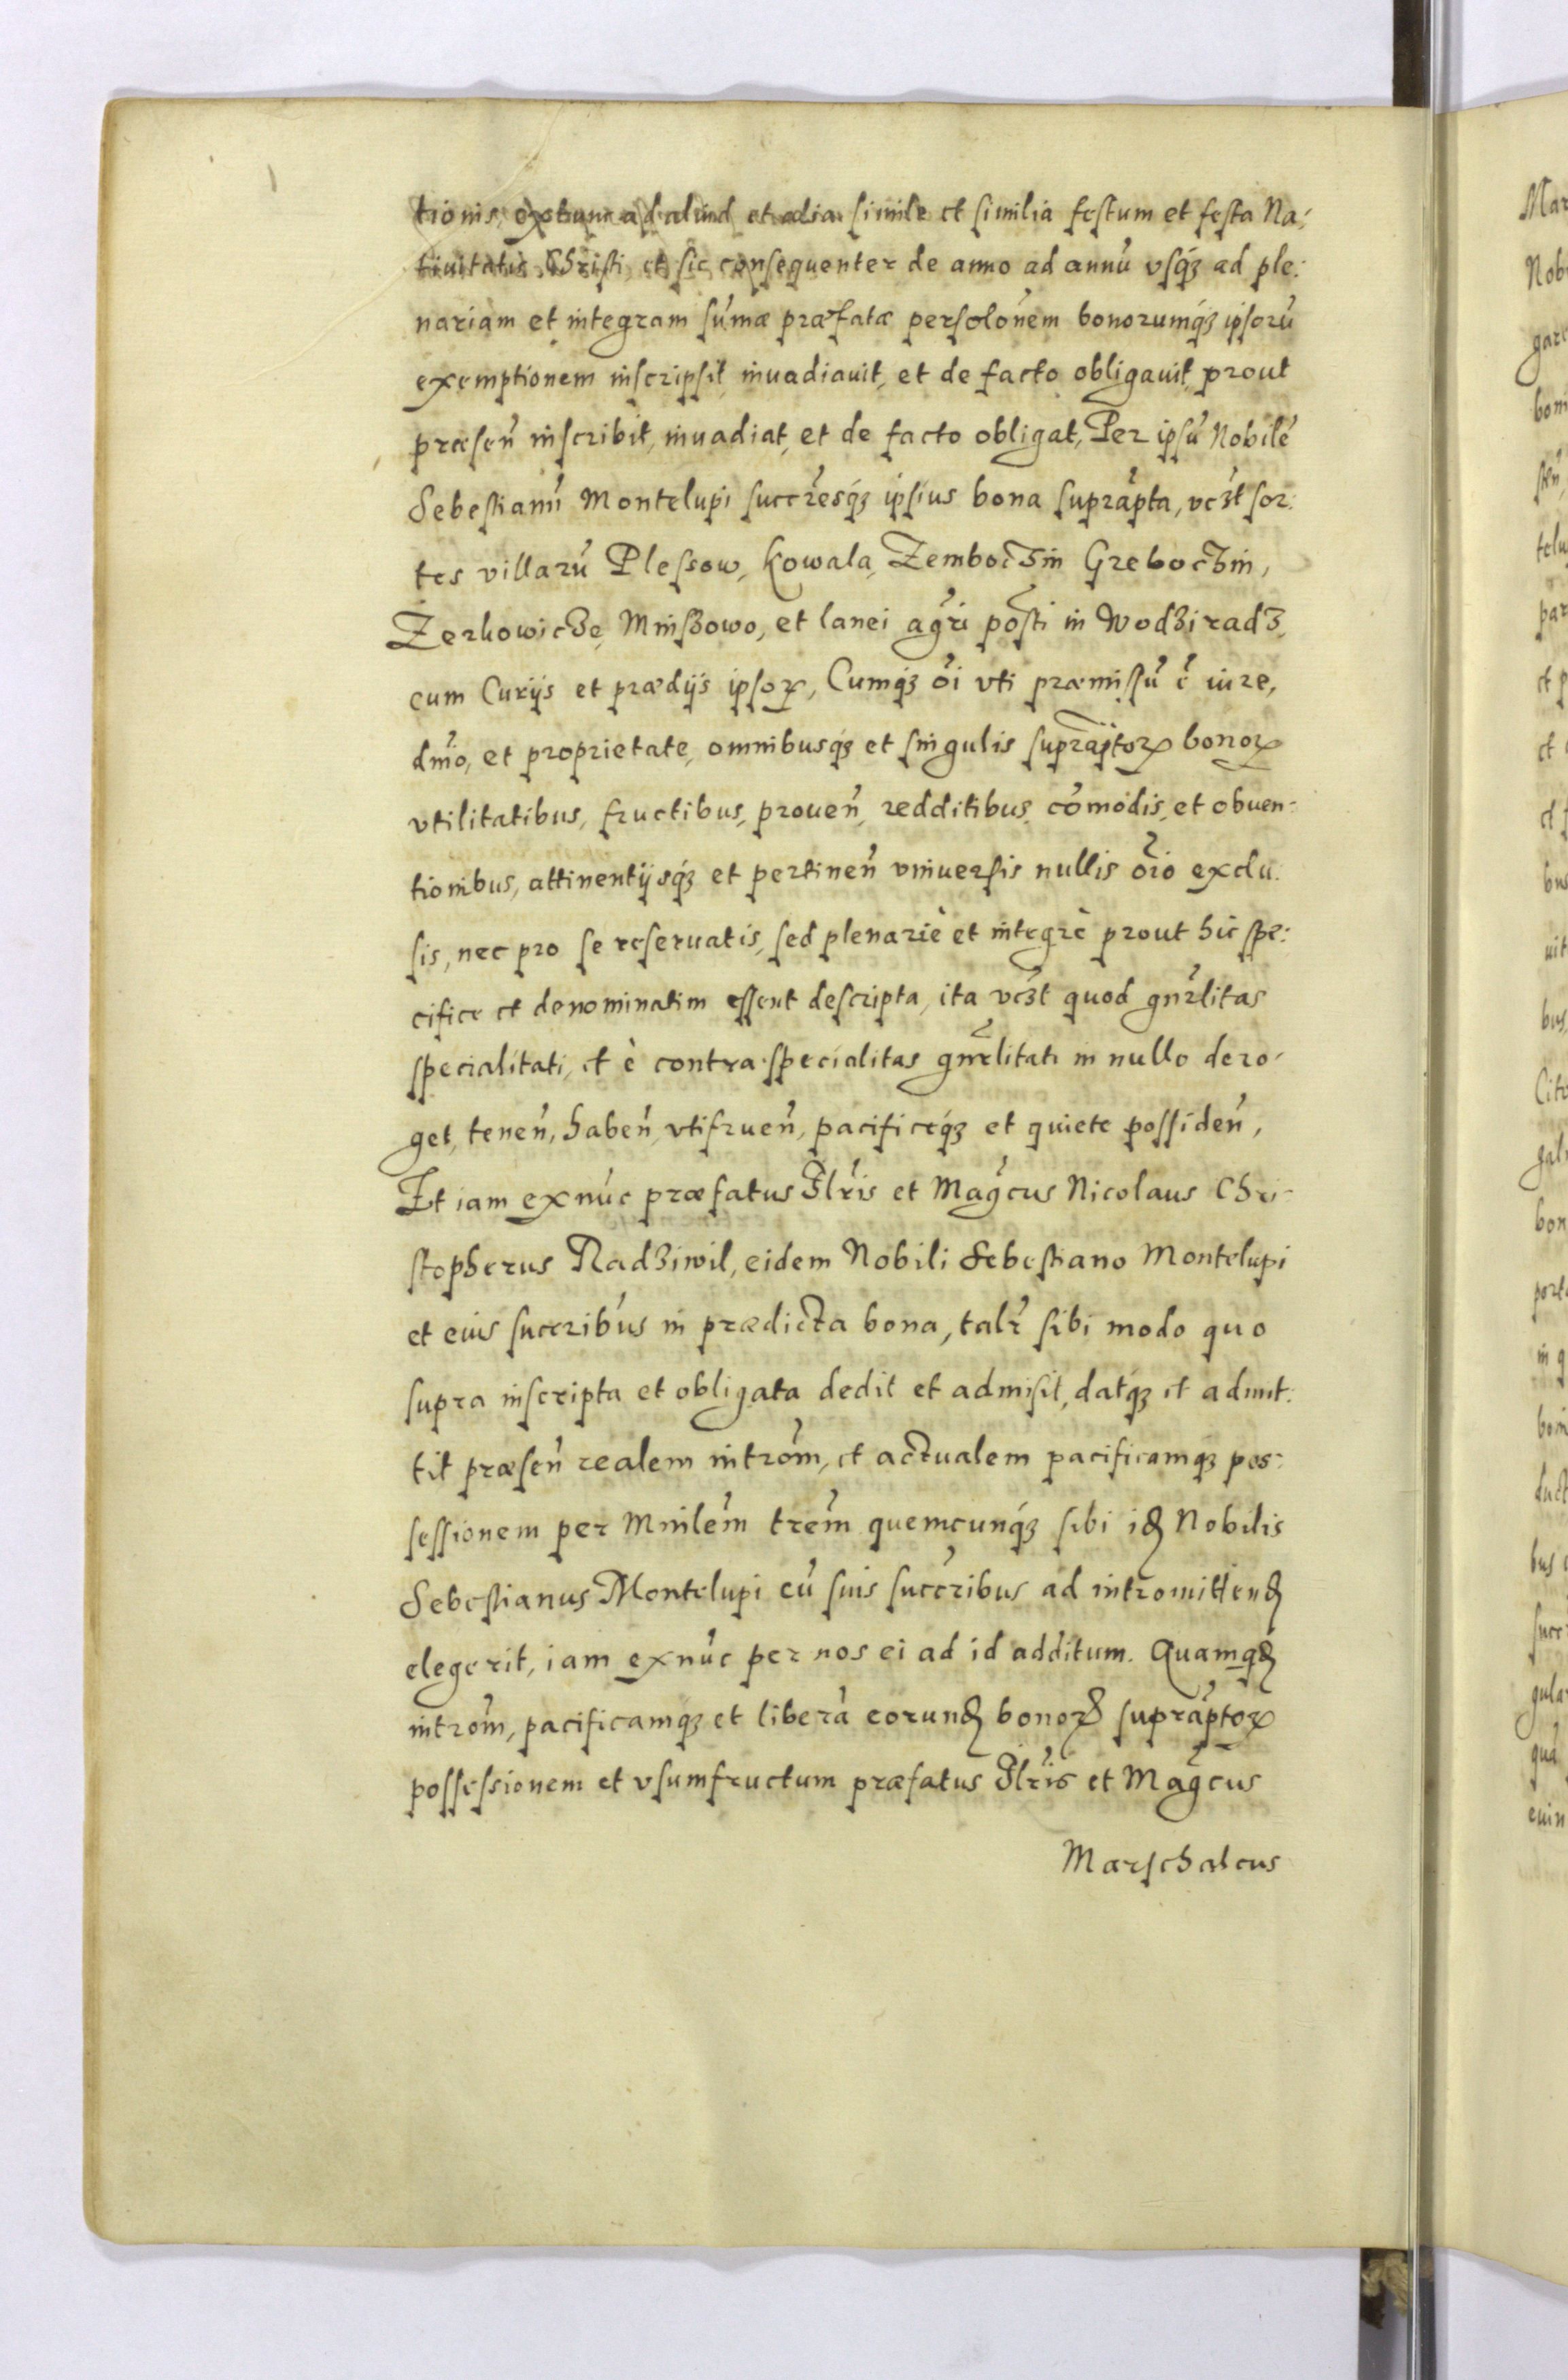 tionis, extunc ad aliud et alia simile et similia festum et festa Na:
tiuitatis Christi, et sic consequenter de anno ad annũ vsq́ꝫ ad ple:
nariam et integram sũmæ præfatæ persolõnem bonorumq́ꝫ ipsorũ
exemptionem inscripsit, inuadiauit, et de facto obligauit, prout
præseñ inscribit, inuadiat, et de facto obligat, Per ipsũ Nobilẽ
Sebestianũ Montelupi succ̃resq́ꝫ ipsius bona suprãpta, vcꝫt sor:
tes villarũ Plessow, Kowala, Zemboczin Greboczin,
Zerkowicze, Minszowo, et lanei agr̃i põsti in Wodziradz,
cum Curijs et prædijs ipsoꝝ, Cumq́ꝫ õi vti præmissũ ẽ iure,
dmĩo, et proprietate, omnibusq́ꝫ et singulis suprãptoꝝ bonoꝝ
vtilitatibus, fructibus, proueñ, redditibus, cõmodis, et obuen:
tionibus, attinentijsq́ꝫ et pertineñ vniuersis nullis oĩo exclu:
sis, nec pro se reseruatis, sed plenariè et integrè prout hic spe:
cifice et denominatim essent descripta, ita vcꝫt quod gnr̃litas
specialitati, et è contra specialitas gnr̃litati in nullo dero:
get, teneñ, habeñ, vtifrueñ, pacificeq́ꝫ et quiete possideñ,
Et iam exnũc præfatus Illr̃is et Mag̃cus Nicolaus Chri:
stopherus Radziwil, eidem Nobili Sebestiano Montelupi
et eius succrib̃us in prædicta bona, talr̃ sibi modo quo
supra inscripta et obligata dedit et admisit, datq́ꝫ et admit:
tit præseñ realem introm̃, et actualem pacificamq́ꝫ pos:
sessionem per Mnilem̃ trem̃ quemcunq́ꝫ sibi idꝫ Nobilis
Sebestianus Montelupi cũ suis succ̃ribus ad intromittendꝫ
elegerit, iam exnũc per nos ei ad id additum. Quamqdꝫ
introm̃, pacificamq́ꝫ et liberã eorundꝫ bonoꝝ suprãptoꝝ
possessionem et vsumfructum præfatus Illr̃is et Mag̃cus
Marschalcus